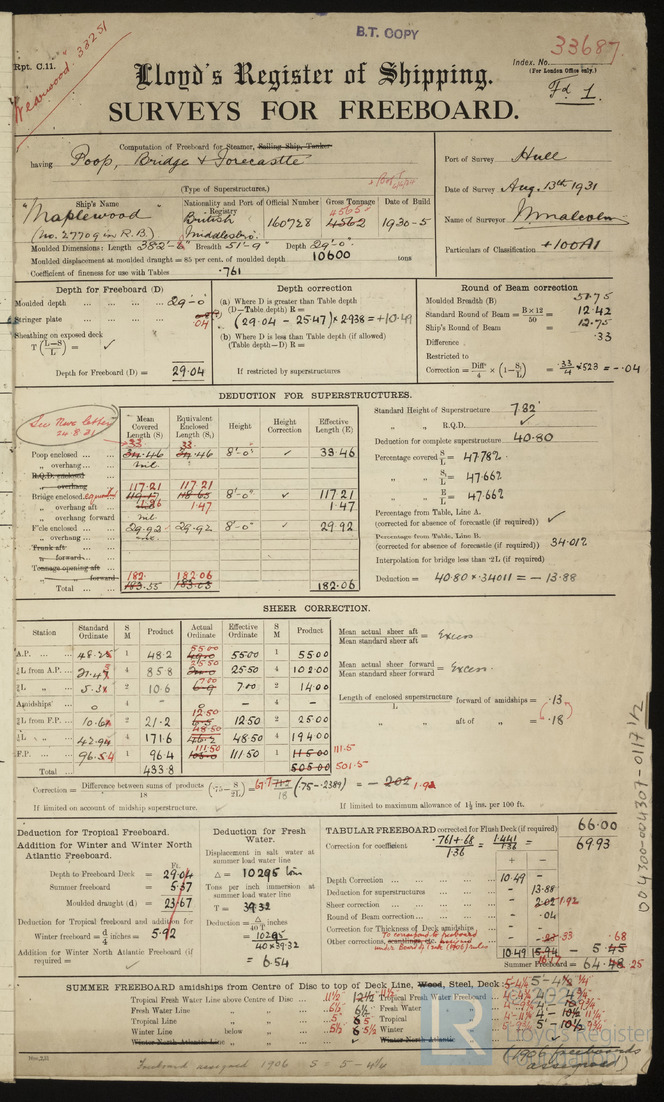 B.T. COPY
33687
Rpt. C.11.
Wearwood. 33251
Index. No.
(For London Office only.)
Lloyd's Register of Shipping.
Fd 1.
SURVEYS FOR FREEBOARD.
Computation of Freeboard for Steamer, Sailing Ship, Tanker
having Poop, Bridge & Forecastle
(Type of Superstructures.)
Port of Survey Hull
Date of Survey Aug. 13th 1931
Name of Surveyor W Malcolm
Particulars of Classification +100A1
Ship's Name
Nationality and Port of Registry
Official Number
Gross Tonnage
Date of Build
"Maplewood"
(No. 27709 in R.B.)
British
Middlesbro.
160728
4565
4562
1930-5
Moulded Dimensions: Length 382'-6" Breadth 51'-9" Depth 29'-0"
Moulded displacement at moulded draught = 85 per cent. of moulded depth 10600 tons
Coefficient of fineness for use with Tables .761
Depth for Freeboard (D)
Moulded depth ... 29'-0"
Stringer plate ... .04
Sheathing on exposed deck
T (L-S/L) = ✓
Depth for Freeboard (D) = 29.04
Depth correction
(a) Where D is greater than Table depth
(D—Table depth) R =
(29.04 - 25.47) × 2.938 = +10.49
(b) Where D is less than Table depth (if allowed)
(Table depth—D) R =
If restricted by superstructures
Round of Beam correction
Moulded Breadth (B) 51.75
Standard Round of Beam = B×12/50 = 12.42
Ship's Round of Beam = 12.75
Difference .33
Restricted to
Correction = Diff/4 × (1-S1/L) = .33/4 × .523 = -.04
DEDUCTION FOR SUPERSTRUCTURES.
See New letter
24.8.31
Mean Covered Length (S)
Equivalent Enclosed Length (S1)
Height
Height Correction
Effective Length (E)
Poop enclosed ... 33.46 33.46 8'-0" ✓ 33.46
„ overhang ... nil
R.Q.D. enclosed
„ overhang
Bridge enclosed 117.21 117.21 8'-0" ✓ 117.21
„ overhang aft 1.47 1.47
„ overhang forward nil
F'cle enclosed ... 29.92 29.92 8'-0" ✓ 29.92
„ overhang ...
Trunk aft ...
„ forward ...
Tonnage opening aft ...
„ „ forward
Total ... 183.55 182.06 183.03 182.06
Standard Height of Superstructure 7.32
„ „ R.Q.D. ✓
Deduction for complete superstructure 40.80
Percentage covered S/L = 47.78%
„ „ S1/L = 47.66%
„ „ E/L = 47.66%
Percentage from Table, Line A.
(corrected for absence of forecastle (if required)) ✓
Percentage from Table, Line B.
(corrected for absence of forecastle (if required)) 34.01%
Interpolation for bridge less than ·2L (if required)
Deduction = 40.80 × .34011 = -13.88
SHEER CORRECTION.
Station
Standard Ordinate
S M
Product
Actual Ordinate
Effective Ordinate
S M
Product
A.P. ... 48.25 1 48.2 55.00 55.00 1 55.00
⅙L from A.P. ... 21.47 4 85.8 25.50 25.50 4 102.00
⅓L „ ... 5.31 2 10.6 7.00 7.00 2 14.00
Amidships 0 4 - 0 - 4 -
⅓L from F.P. ... 10.62 2 21.2 12.50 12.50 2 25.00
⅙L „ ... 42.94 4 171.6 48.50 48.50 4 194.00
F.P. ... 96.54 1 96.4 111.50 111.50 1 115.00 111.5
Total ... 433.8 505.00 501.5
Mean actual sheer aft
Mean standard sheer aft = Excess
Mean actual sheer forward
Mean standard sheer forward = Excess.
Length of enclosed superstructure/L forward of amidships = .13
„ „ aft of „ = .18
Correction = Difference between sums of products/18 (·75 - S/2L) = 67.7/18 (.75-.2389) = -2.02 1.92
If limited on account of midship superstructure.
If limited to maximum allowance of 1½ ins. per 100 ft.
Deduction for Tropical Freeboard.
Addition for Winter and Winter North Atlantic Freeboard.
Ft.
Depth to Freeboard Deck = 29.04
Summer freeboard = 5.37
Moulded draught (d) = 23.67
Deduction for Tropical freeboard and addition for
Winter freeboard = d/4 inches = 5.92
Addition for Winter North Atlantic Freeboard (if required) = ✓
Deduction for Fresh Water.
Displacement in salt water at summer load water line
Δ = 10295 tons
Tons per inch immersion at summer load water line
T = 39.32
Deduction = Δ/40T inches
= 10295/40×39.32
= 6.54
TABULAR FREEBOARD corrected for Flush Deck (if required) 66.00
Correction for coefficient .761+.68/1.36 = 1.441/1.36 = 69.93
+ -
Depth Correction ... 10.49 -
Deduction for superstructures ... - 13.88
Sheer correction ... - 2.02 1.92
Round of Beam correction ... - .04
Correction for Thickness of Deck amidships -
Other corrections, scantlings, etc.
To correspond to freeboard
10.49 - 5.45 .68
Summer Freeboard = 64.48 .25
SUMMER FREEBOARD amidships from Centre of Disc to top of Deck Line, Wood, Steel, Deck
Tropical Fresh Water Line above Centre of Disc ... 11½ 12½
Fresh Water Line „ „ ... 6½
Tropical Line „ „ ... 5
Winter Line below „ ... 5½
Winter North Atlantic Line „ „
Tropical Fresh Water Freeboard
Fresh Water „
Tropical „
Winter „
Winter North Atlantic „
(1906 freeboards assigned)
Freeboard assigned 1906 S - 5 - 4¼
004300-004307-0117 1/2
LR Lloyd's Register Foundation